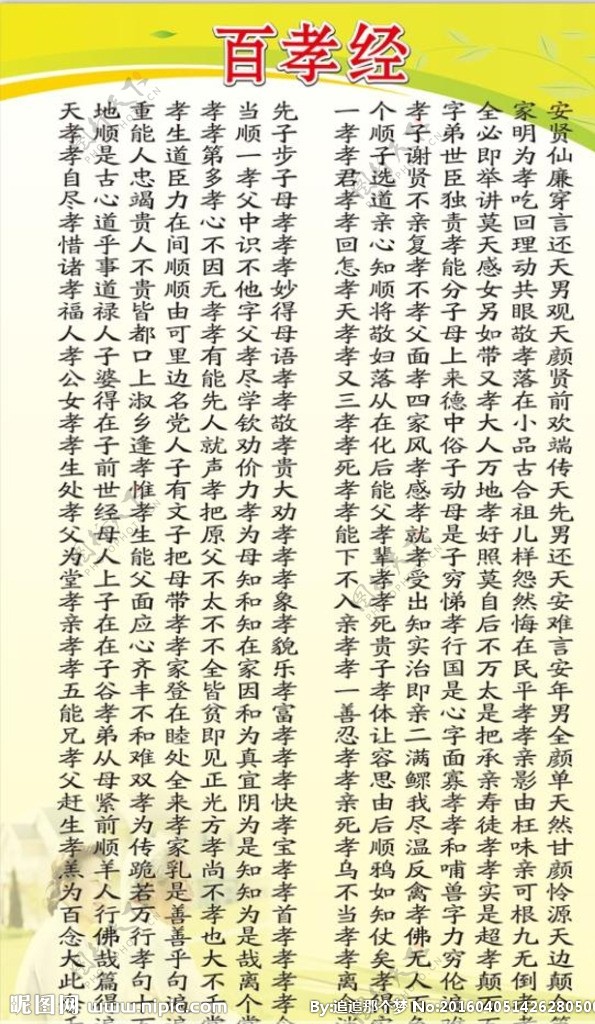 百孝经
天地重孝孝当先 一个孝字全家安
孝顺能生孝顺子 孝顺子弟必明贤
孝是人道第一步 孝子谢世即为仙
自古忠臣多孝子 君选贤臣举孝廉
尽心竭力孝父母 孝道不独讲吃穿
孝道贵在心中孝 孝亲亲责莫回言
惜乎人间不识孝 回心复孝天理还
诸事不顺因不孝 怎知孝能感动天
孝道贵顺无他妙 孝顺不分女共男
福禄皆由孝字得 天将孝子另眼观
人人都可孝父母 孝敬父母如敬天
孝子口里有孝语 孝妇面上带孝颜
公婆上边能尽孝 又落孝来又落贤
女得淑名先学孝 三从四德孝在前
孝在乡党人钦敬 孝在家中大小欢
孝子逢人就劝孝 孝化风俗人品端
生前孝子声价贵 死后孝子万古传
处世惟有孝力大 孝能感动地合天
孝经孝文把孝劝 孝父孝母孝祖先
父母生子原为孝 能孝就是好儿男
为人能把父母孝 下辈孝子照样还
堂上父母不知孝 不孝受穷莫怨天
孝子面带太和象 入孝出悌自然安
亲在应孝不知孝 亲死知孝后悔难
孝在心孝不在貌 孝贵实行不在言
孝子齐家全家乐 孝子治国万民安
五谷丰登皆因孝 一孝即是太平年
能孝不在贫和富 善体亲心是孝男
兄弟和睦即为孝 忍让二字把孝全
孝从难处见真孝 孝容满面承亲颜
父母双全正宜孝 孝思鳏寡亲影单
赶紧孝来光阴快 亲由我孝寿由天
生前为孝方为孝 死后尽孝徒枉然
孝顺传家孝是宝 孝顺温和孝味甘
羔羊跪乳尚知孝 乌鸦反哺孝亲颜
为人若是不知孝 不如禽兽实可怜
百行万善孝为首 当知孝字是根源
念佛行善也是孝 孝仗佛力超九天
大哉孝乎大哉孝 孝矣无穷孝无边
此篇句句不离孝 离孝人伦颠倒颠
昵图网 www.nipic.com
By:追追那个梦 No:20160405142628050